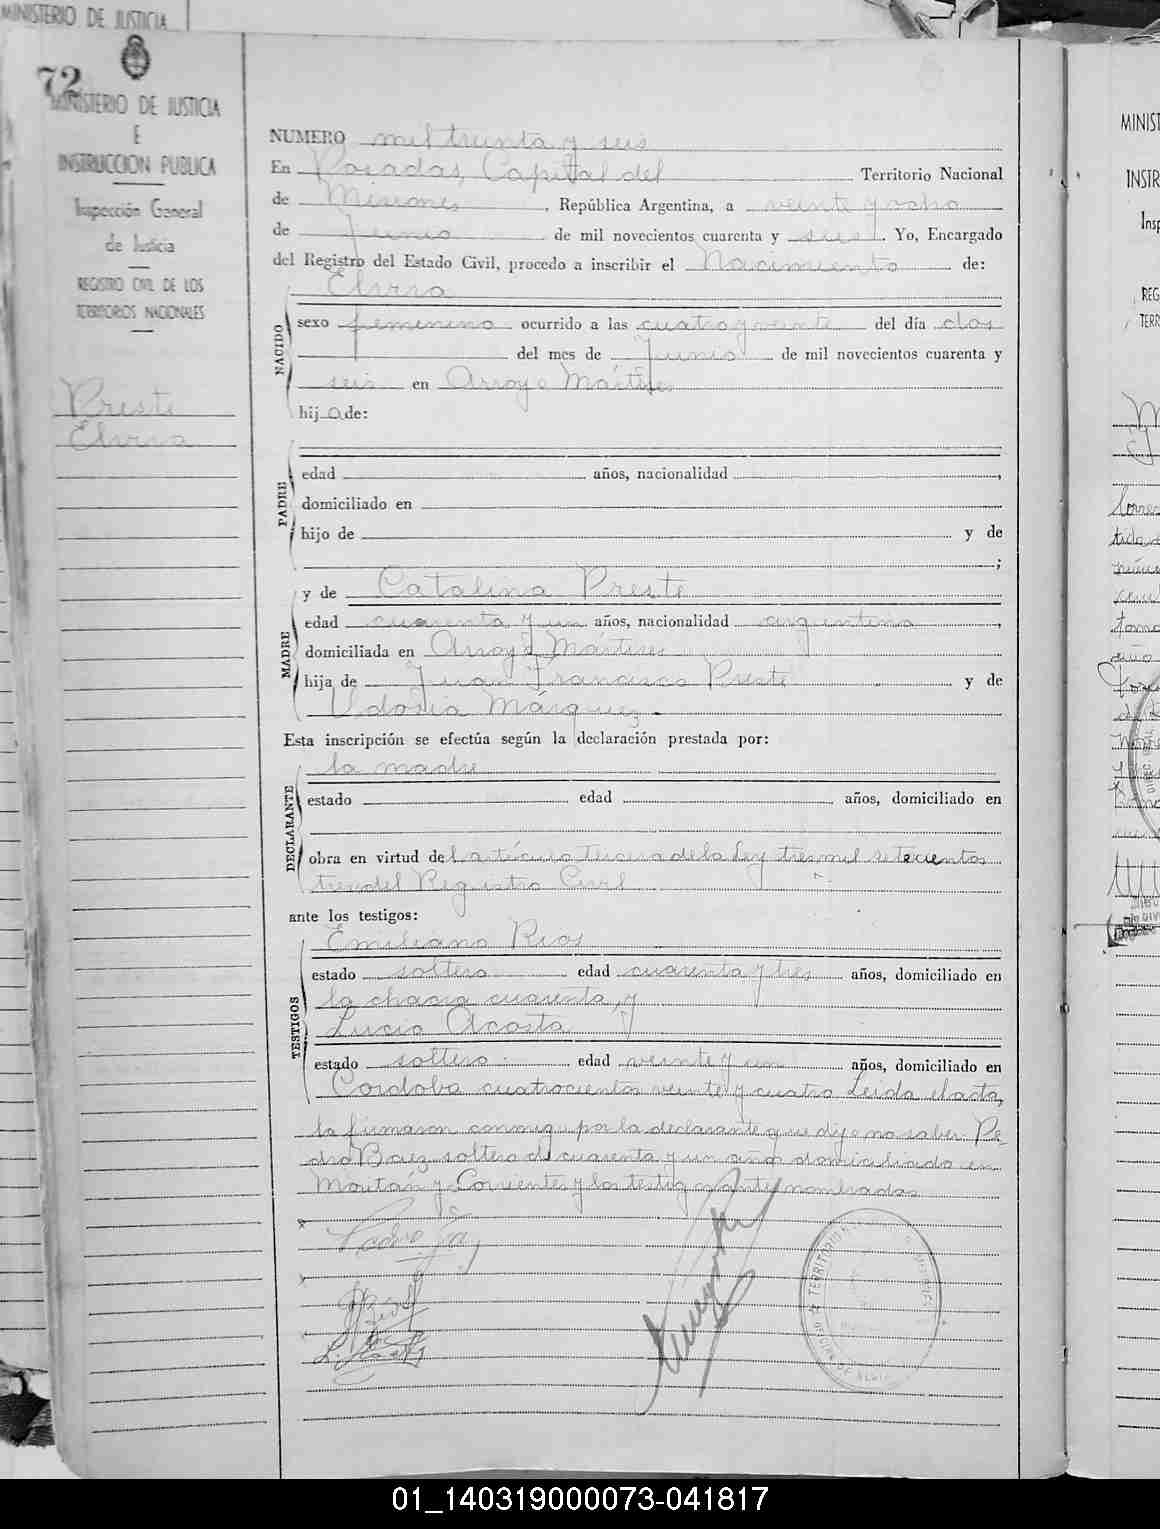 MINISTERIO DE JUSTICIA
72
MINISTERIO DE JUSTICIA
E
INSTRUCCION PUBLICA
Inspección General
de Justicia
REGISTRO CIVIL DE LOS
TERRITORIOS NACIONALES
Preste
Elvira
NUMERO mil treinta y seis
En Posadas, Capital del Territorio Nacional
de Misiones, República Argentina, a veinte y ocho
de Junio de mil novecientos cuarenta y seis. Yo, Encargado
del Registro del Estado Civil, procedo a inscribir el Nacimiento de:
Elvira
NACIDO
sexo femenino ocurrido a las cuatro y veinte del día dos
del mes de Junio de mil novecientos cuarenta y
seis en Arroyo Mártires
hija de:
PADRE
edad años, nacionalidad ,
domiciliado en
hijo de y de
;
y de Catalina Preste
MADRE
edad cuarenta y un años, nacionalidad argentina,
domiciliada en Arroyo Mártires
hija de Juan Francisco Preste y de
Udosia Márquez.
Esta inscripción se efectúa según la declaración prestada por:
la madre
DECLARANTE
estado edad años, domiciliado en
obra en virtud del artículo tercero de la Ley tres mil setecientos
tres del Registro Civil
ante los testigos:
TESTIGOS
Emiliano Rios
estado soltero edad cuarenta y tres años, domiciliado en
la chacra cuarenta, y
Lucio Acosta
estado soltero edad veinte y un años, domiciliado en
Córdoba cuatrocientos veinte y cuatro Leida el acta,
la firmaron conmigo por la declarante que dijo no saber Pe-
dro Baez soltero de cuarenta y un años domiciliado en
y Corrientes y los testigos antes nombrados
MINIST
INSTR
Insp
REG
TERR
01_140319000073-041817